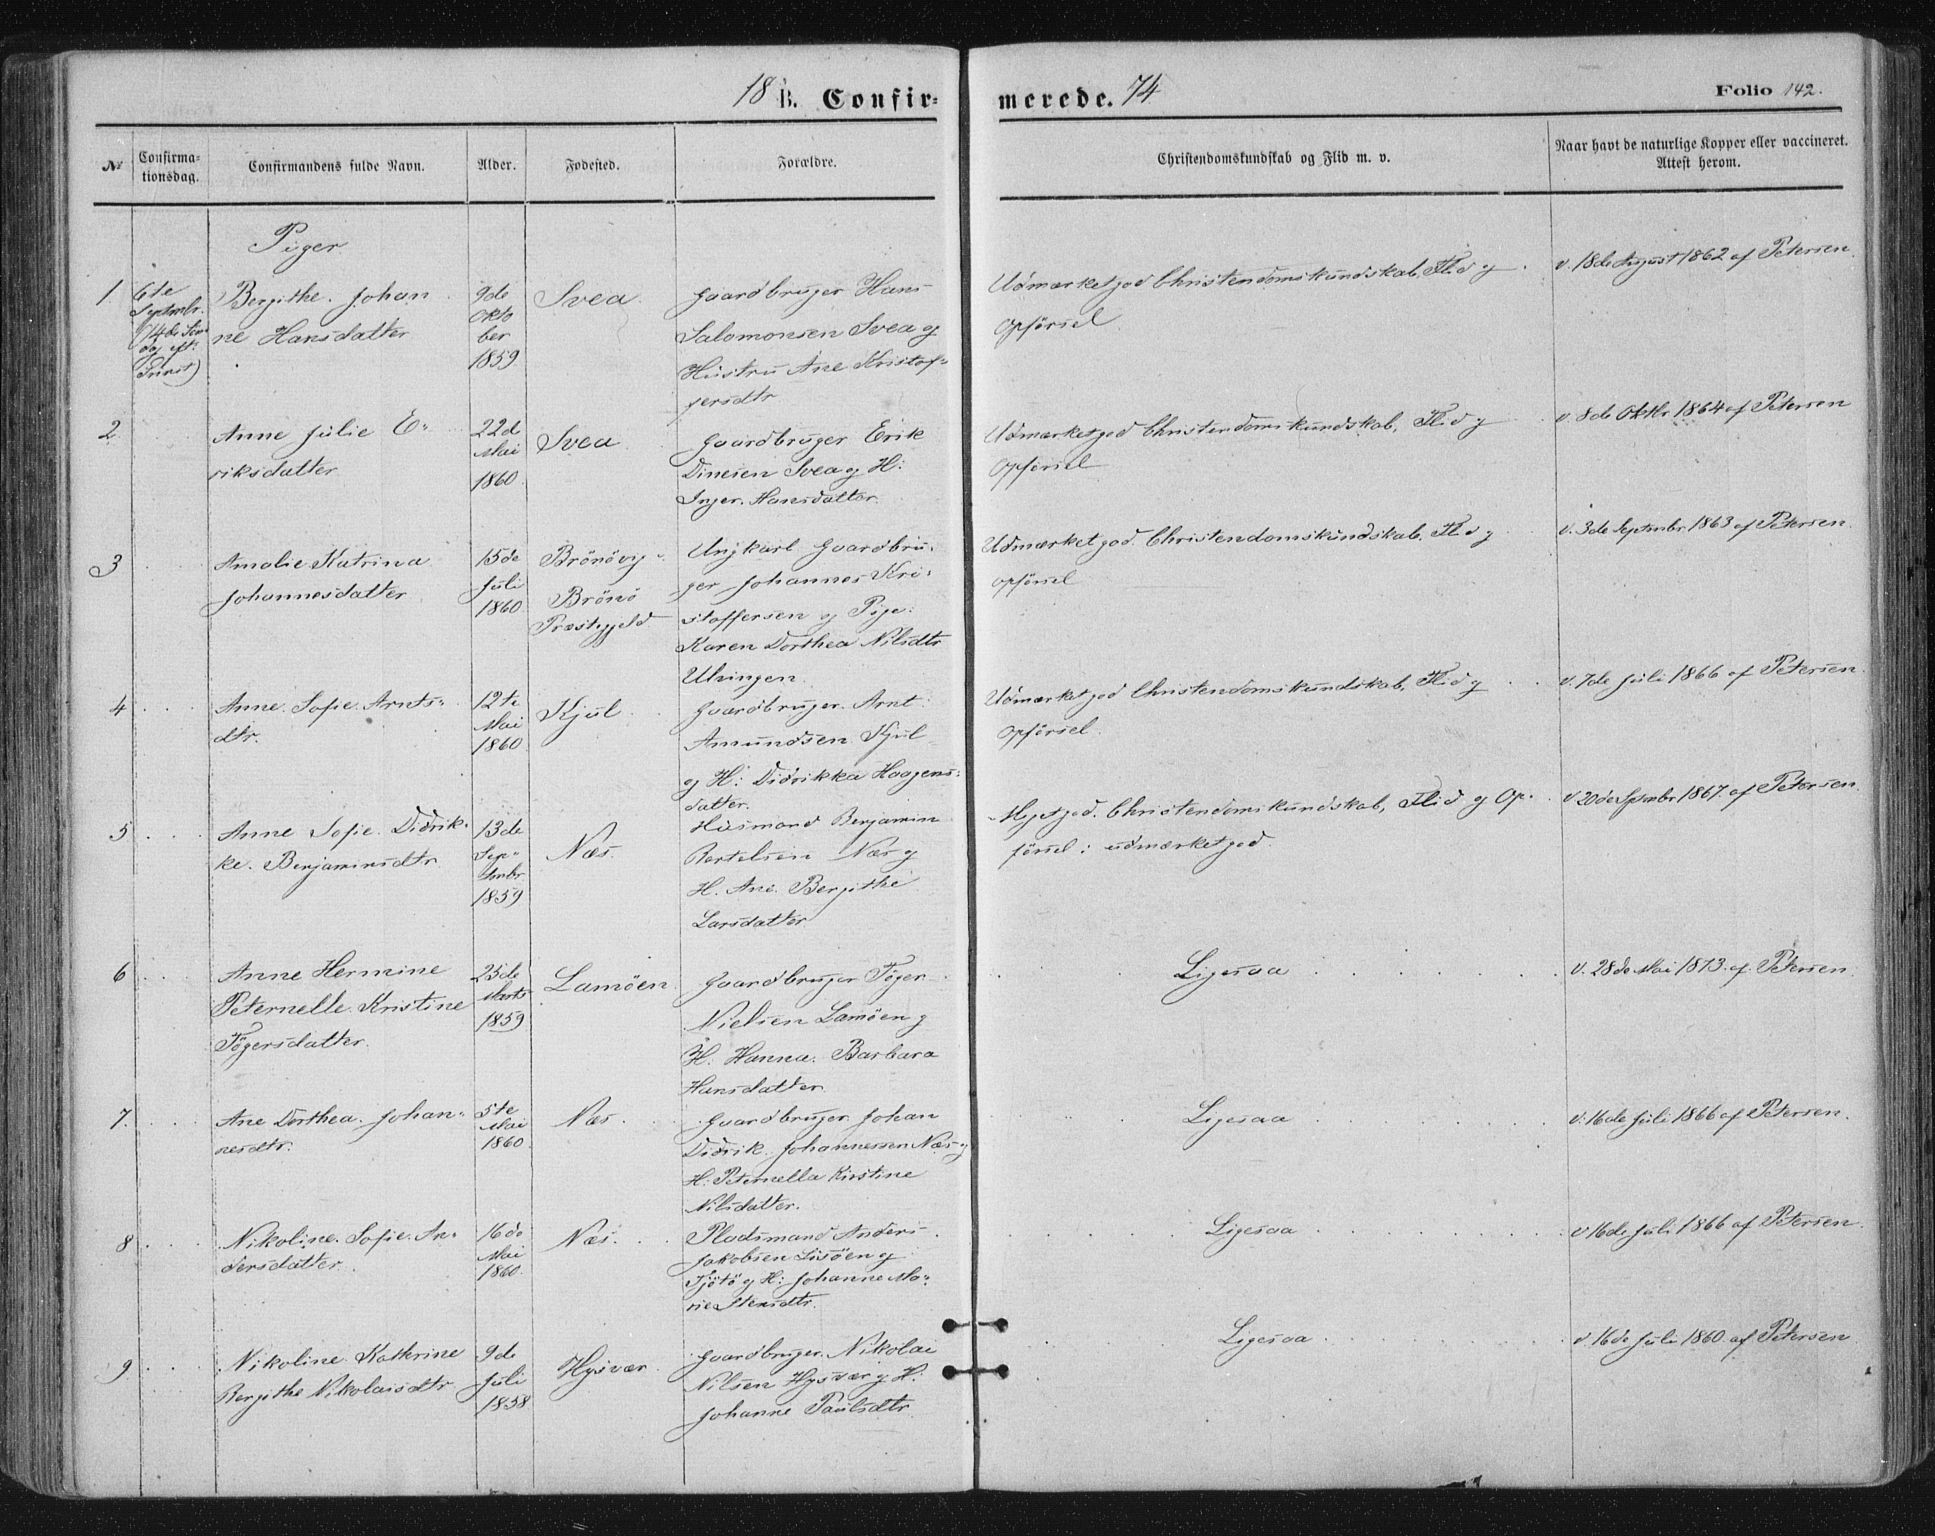 18 B. Confir= merede. 74 Folio 142.
No Confirma=tionsdag. Confirmandens fulde Navn. Alder. Fødested. Forældre. Christendomskundskab og Flid m. v. Naar havt de naturlige Kopper eller vaccineret. Attest herom.
Piger
1 6te Septembr. (14de Søndag eft. Trinit)
Bergithe Johan
ne Hansdatter
9de
Okto
ber
1859
Svea
Gaardbruger Hans
Salomonsen Svea og
Hustru Ane Kristof=
fersdtr
Udmærket god Christendomskundskab, Flid og
Opførsel
v. 18de August 1862 af Petersen
2
Anne Julie E=
riksdatter
22de
Mai
1860
Svea
Gaardbruger Erik
Dinesen Svea og H:
Inger Hansdatter
Udmærket god Christendomskundskab, Flid og
Opførsel
v. 8de Oktbr 1864 af Petersen
3
Amalie Katrina
Johannesdatter
15de
Juli
1860
Brönöy
Brönö
Præstegjeld
Ungkarl Gaardbru=
ger Johannes Kri=
stoffersen og Pige
Karen Dorthea Nilsdtr
Ulvingen
Udmærket god Christendomskundskab, Flid og
Opførsel
v. 3de Septembr 1863 af Petersen
4
Anne Sofie Arnts=
dtr.
12te
Mai
1860
Kjul
Gaardbruger Arnt
Amundsen Kjul
og H: Didrikka Haagens=
datter.
Udmærket god Christendomskundskab, Flid og
Opførsel.
v. 7de Juli 1866 af Petersen
5
Anne Sofie Didrik=
ke Benjaminsdtr
13de
Sep=
tmbr
1859
Næs
Husmand Benjamin
Bertelsen Næs og
H. Ane Bergithe
Larsdatter
Meget god Christendomskundskab, Flid og Op=
førsel: udmærket god.
v 20de Sptmbr 1867 af Petersen
6
Anne Hermine
Peternelle Kristine
Tøgersdatter.
25de
Marts
1859
Lamöen
Gaardbruger Tøger
Nielsen Lamöen og
H. Hanna Barbara
Hansdatter
Ligesaa
v. 28de Mai 1873 af Petersen
7.
Ane Dorthea Johan=
nesdtr.
5te
Mai
1860
Næs
Gaardbruger Johan
Didrik Johannessen Næs og
H: Peternella Kirstine
Nilsdatter.
Ligesaa
v. 16de Juli 1866 af Petersen.
8
Nikoline Sofie An=
dersdatter
16de
Mai
1860
Næs
Pladsmand Anders
Jakobsen og
Tjötö og H: Johanne Ma=
rie Stensdtr.
Ligesaa
v 16de Juli 1866 af Petersen
9
Nikoline Kathrine
Bergithe Nikolaisdtr
9de
Juli
1858
Hysvær
Gaardbruger Nikolai
Nilsen Hysvær og H:
Johanne Paulsdtr
Ligesaa
v 16de Juli 1860 af Petersen